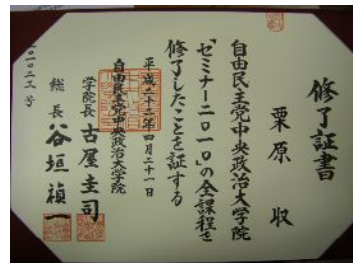 修了証書
栗原 収
自由民主党中央政治大学院
「ゼミナー二〇一〇」の全課程を
修了したことを証する
平成二十二年四月二十一日
自由民主党中央政治大学院
学院長 古屋圭司
総長 谷垣禎一